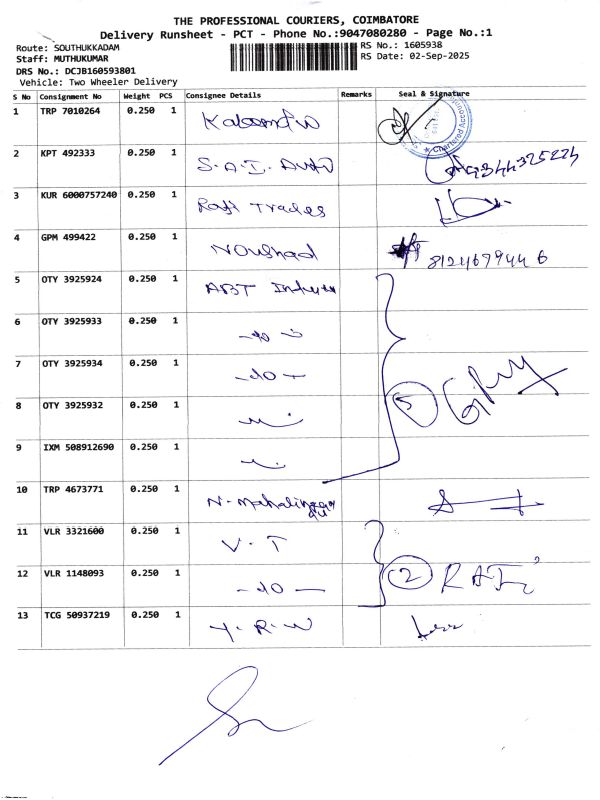 THE PROFESSIONAL COURIERS, COIMBATORE
Delivery Runsheet - PCT - Phone No.:9047080280 - Page No.:1
Route: SOUTHUKKADAM
RS No.: 1605938
Staff: MUTHUKUMAR
RS Date: 02-Sep-2025
DRS No.: DCJB160593801
Vehicle: Two Wheeler Delivery
S No Consignment No Weight PCS Consignee Details Remarks Seal & Signature
1 TRP 7010264 0.250 1
Chartered
2 KPT 492333 0.250 1 S.A.I. Auto 9344325224
3 KUR 6000757240 0.250 1 Raji Trades
4 GPM 499422 0.250 1 Noushad 8124679446
5 OTY 3925924 0.250 1 ABT
6 OTY 3925933 0.250 1 -do-
7 OTY 3925934 0.250 1 -do-
8 OTY 3925932 0.250 1 5
9 IXM 508912690 0.250 1
10 TRP 4673771 0.250 1 N. Mahalingam
11 VLR 3321600 0.250 1 V. T
12 VLR 1148093 0.250 1 -do- 2
13 TCG 50937219 0.250 1